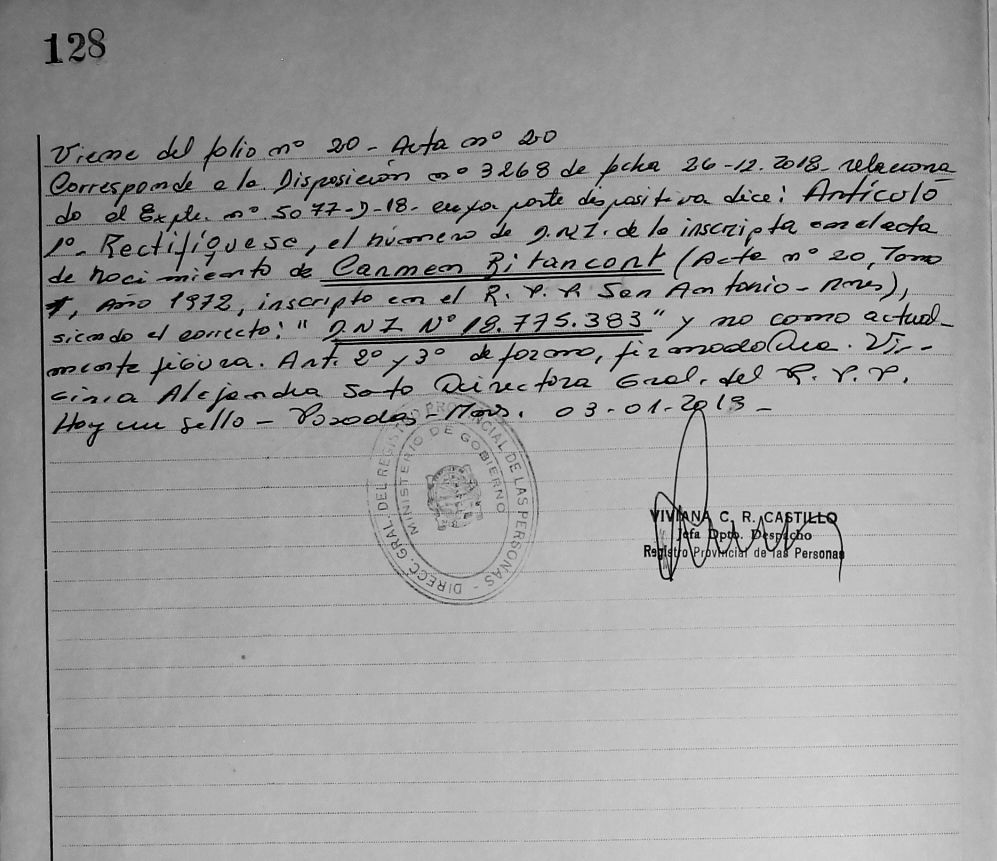 128
Viene del folio nº 20 - Acta nº 20
Corresponde a la Disposición nº 3268 de fecha 26-12-2018 relaciona
do el Expte. nº 5077-D-18- cuya parte dispositiva dice: Artículo
1º- Rectifíquese, el número de D.N.I. de la inscripta en el acta
de nacimiento de Carmen Bitancort (Acta nº 20, Tomo
1, Año 1972, inscripto en el R. P. P. San Antonio - Mnes),
siendo el correcto: "D.N.I Nº 18.775.383" y no como actual-
mente figura. Art. 2º y 3º de forma, firmado Dra. Vir-
ginia Alejandra Soto Directora Gral. del R. P. P.
Hay un sello - Posadas - Mnes. 03-01-2019 -
DIRECC. GRAL. DEL REGISTRO PROVINCIAL DE LAS PERSONAS -
MINISTERIO DE GOBIERNO
VIVIANA C. R. CASTILLO
Jefa Dpto. Despacho
Registro Provincial de las Personas